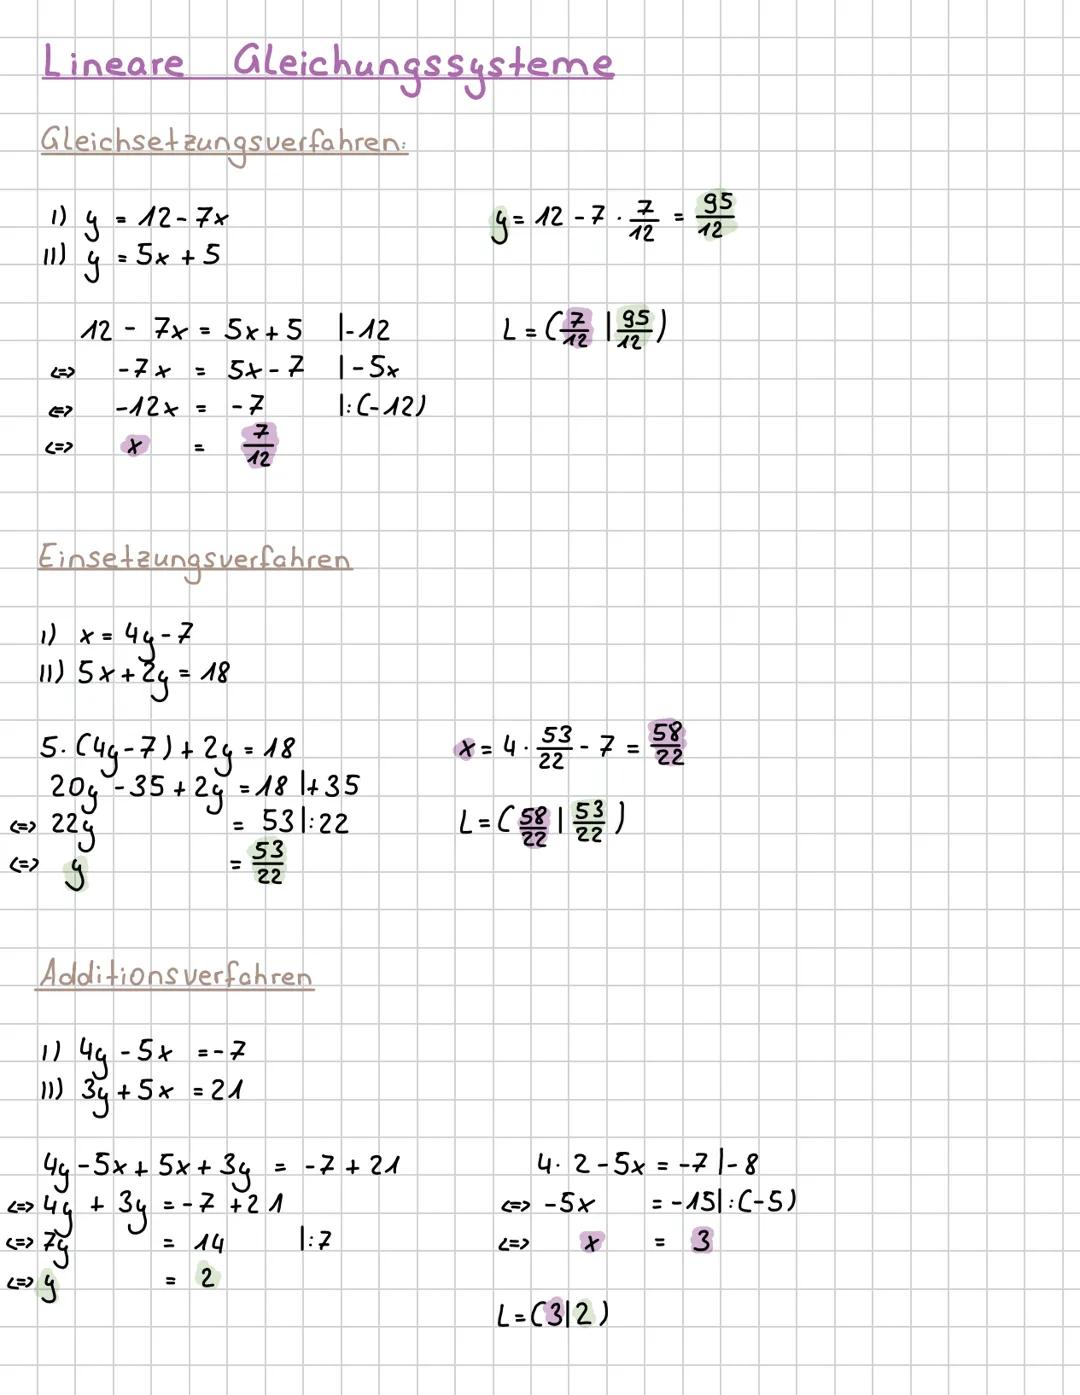 Lineare Gleichungssysteme
Gleichsetzungsverfahren:
I) y = 12 - 7x
II) y = 5x + 5
12 - 7x = 5x + 5 |-12
<=> -7x = 5x - 7 |-5x
<=> -12x = -7 |:(-12)
<=> x = 7/12
y = 12 - 7 · 7/12 = 95/12
L = (7/12 | 95/12)
Einsetzungsverfahren
I) x = 4y - 7
II) 5x + 2y = 18
5·(4y-7) + 2y = 18
20y - 35 + 2y = 18 |+35
<=> 22y = 53 |:22
<=> y = 53/22
x = 4 · 53/22 - 7 = 58/22
L = (58/22 | 53/22)
Additionsverfahren
I) 4y - 5x = -7
II) 3y + 5x = 21
4y - 5x + 5x + 3y = -7 + 21
<=> 4y + 3y = -7 + 21
<=> 7y = 14 |:7
<=> y = 2
4·2 - 5x = -7 |-8
<=> -5x = -15 |:(-5)
<=> x = 3
L = (3|2)